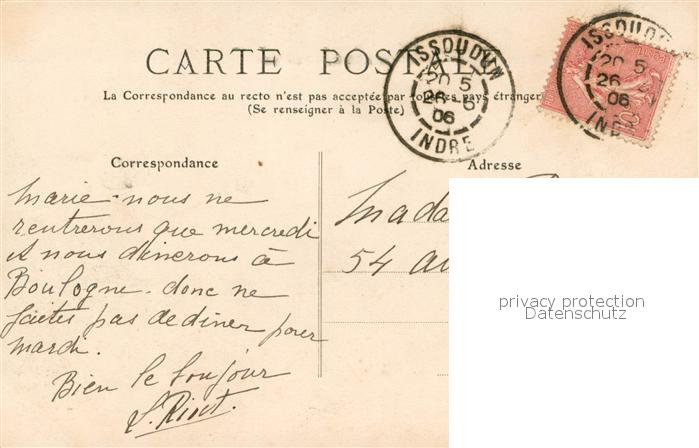 CARTE POSTALE
La Correspondance au recto n'est pas acceptée par tous les pays étrangers
(Se renseigner à la Poste)
ISSOUDUN
20 5
26 -6
06
INDRE
ISSOUDUN
20 5
26
06
INDRE
Correspondance
Adresse
Marie nous ne
rentrerons que mercredi
et nous dinerons à
Boulogne - donc ne
faites pas de diner pour
mardi.
Bien le bonjour
Mada
54 au
privacy protection
Datenschutz